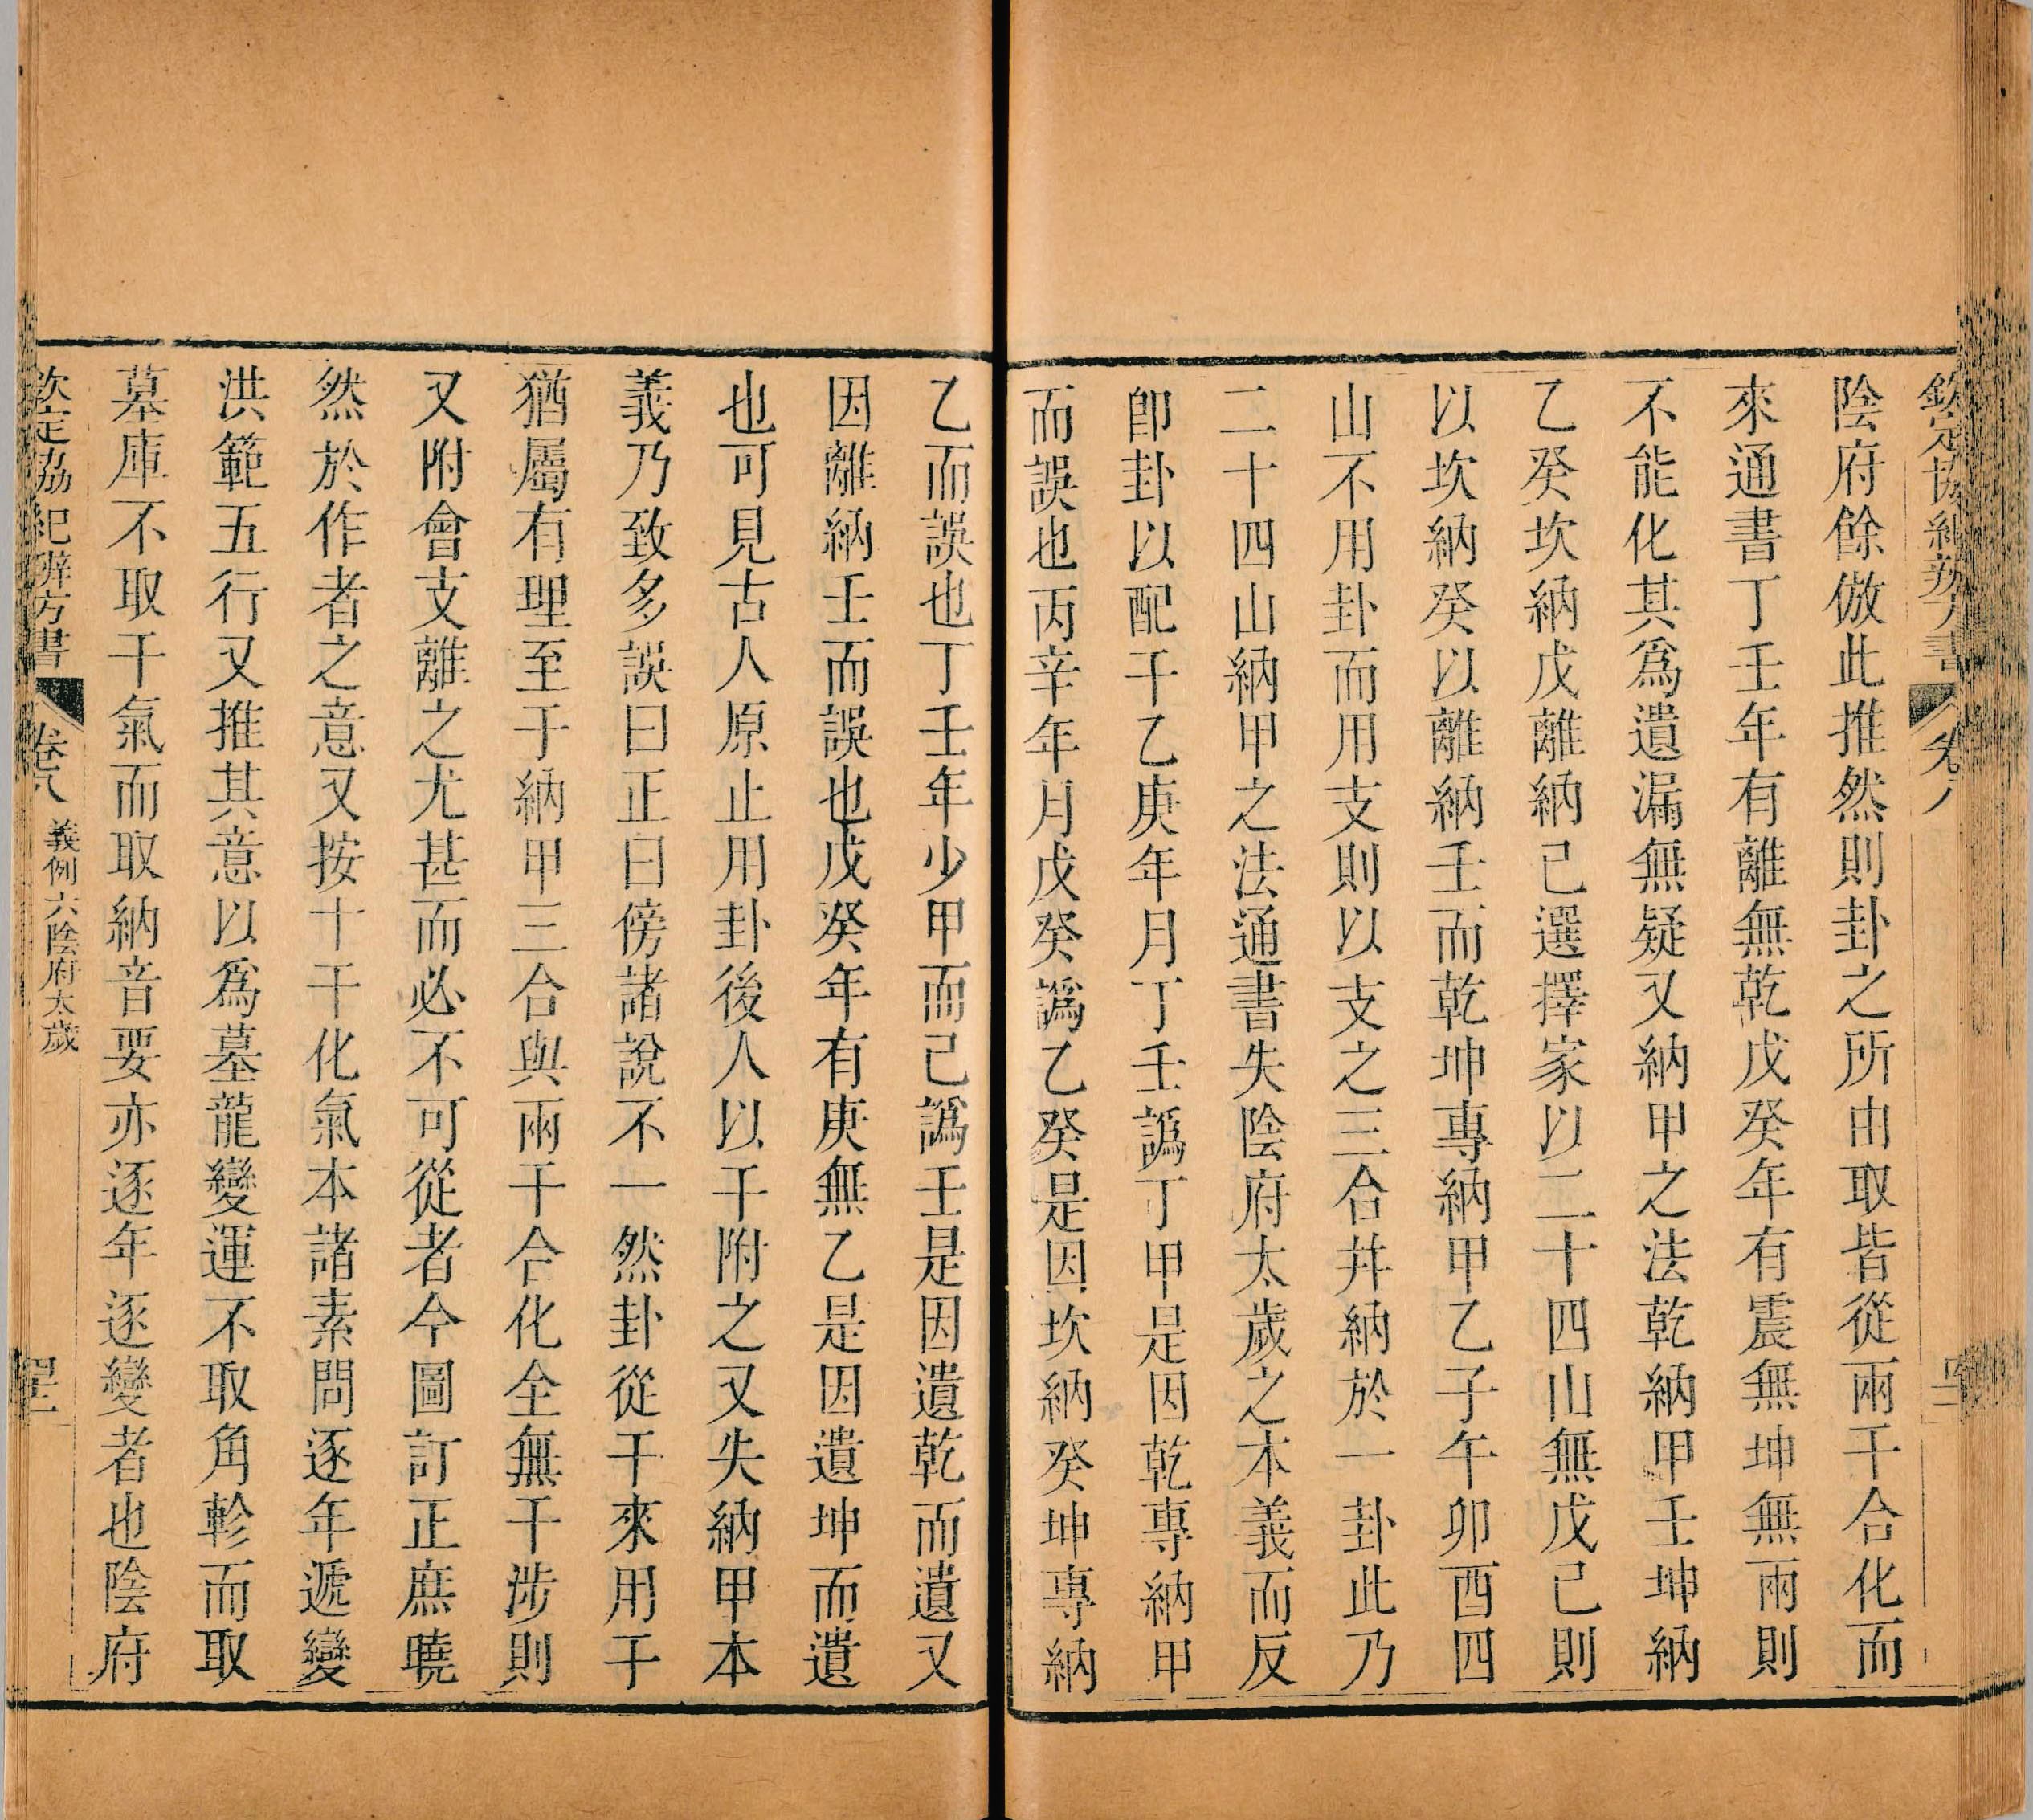 欽定協紀辨方書 卷八
陰府餘倣此推然則卦之所由取皆從兩干合化而
來通書丁壬年有離無乾戊癸年有震無坤無兩則
不能化其爲遺漏無疑又納甲之法乾納甲壬坤納
乙癸坎納戊離納己選擇家以二十四山無戊己則
以坎納癸以離納壬而乾坤專納甲乙子午卯酉四
山不用卦而用支則以支之三合幷納於一卦此乃
二十四山納甲之法通書失陰府太歲之本義而反
卽卦以配干乙庚年月丁壬譌丁甲是因乾專納甲
而誤也丙辛年月戊癸譌乙癸是因坎納癸坤專納
乙而誤也丁壬年少甲而己譌壬是因遺乾而遺又
因離納壬而誤也戊癸年有庚無乙是因遺坤而遺
也可見古人原止用卦後人以干附之又失納甲本
義乃致多誤曰正曰傍諸說不一然卦從干來用干
猶屬有理至于納甲三合與兩干合化全無干涉則
又附會支離之尤甚而必不可從者今圖訂正庶曉
然於作者之意又按十干化氣本諸素問逐年遞變
洪範五行又推其意以爲墓龍變運不取角軫而取
墓庫不取干氣而取納音要亦逐年逐變者也陰府
欽定協紀辨方書 卷八 義例六陰府太歲